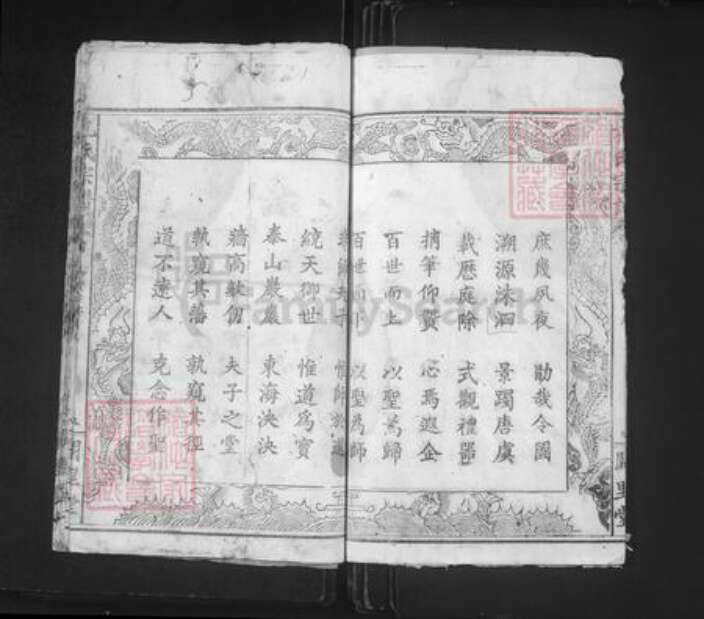 庶幾夙夜 勖哉令圖
溯源洙泗 景躅唐虞
載歷庭除 式觀禮器
摛筆仰贊 心焉遐企
百世而上 以聖為歸
百世而下 以聖為師
非師夫子 惟師於道
統天御世 惟道為寶
泰山巖巖 東海泱泱
牆高數仞 夫子之堂
孰窺其藩 孰窺其徑
道不遠人 克念作聖
FamilySearch